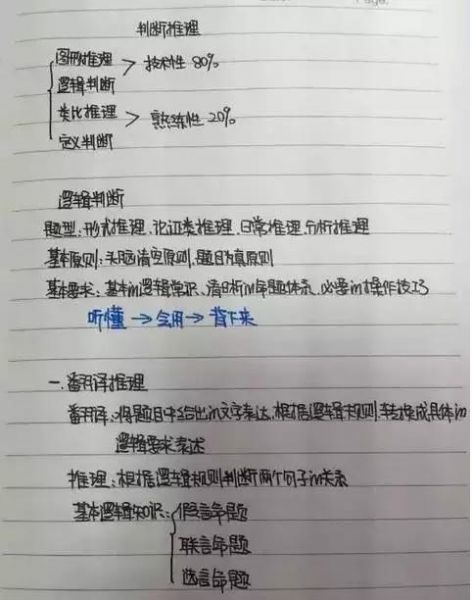 判断推理
图形推理 > 技术性 80%
逻辑判断
类比推理 > 熟练性 20%
定义判断
逻辑判断
题型:形式推理、论证类推理、日常推理、分析推理
基本原则:头脑清空原则,题目为真原则
基本要求:基本的逻辑常识、清晰的解题体系、必要的操作技巧
听懂→会用→背下来
一.翻译推理
翻译:将题目中给出的文字表达,根据逻辑规则,转换成具体的
逻辑要求表述
推理:根据逻辑规则判断两个句子的关系
基本逻辑知识:假言命题
联言命题
选言命题